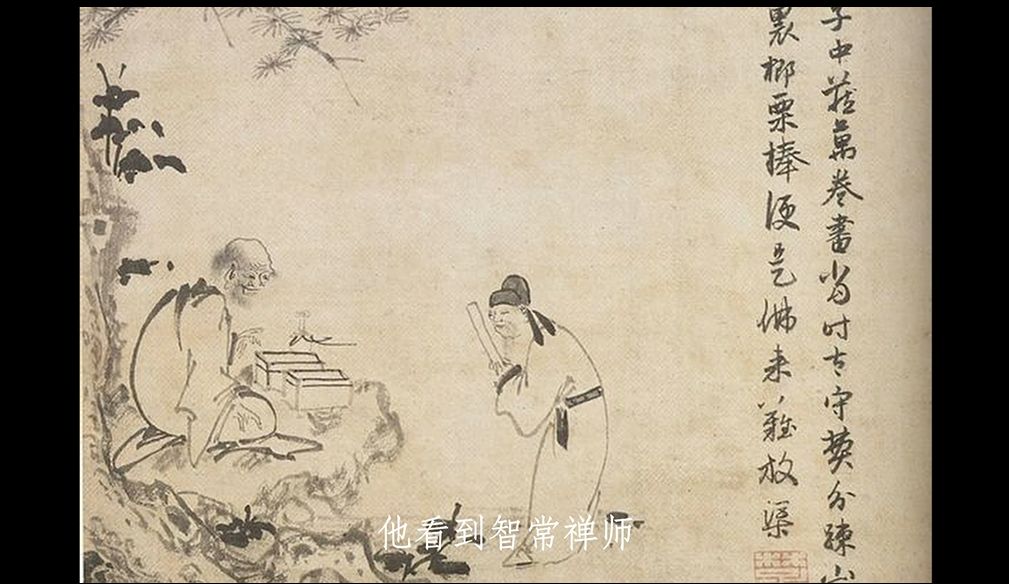 子中藏萬卷書當时太守費分疎山
裏榔栗棒便是佛来難救渠
他看到智常禅师